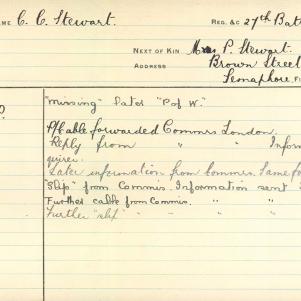 NAME C. C. Stewart. REG. &c 27th Batt
NEXT OF KIN Mrs P. Stewart.
ADDRESS Brown Street
Semaphore,
"Missing" later "P of W."
Cable forwarded Commrs London.
Reply from " " Inform
Later information from Commrs. Same fo
"Slip" from Commrs. Information sent
Further cable from Commrs. "
Further "slip" " " " "